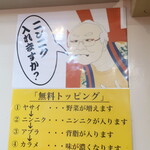 ニンニク
入れますか?
「無料トッピング」
① ヤサイ・・・野菜が増えます
② ニンニク・・・ニンニクが入ります
③ アブラ・・・背脂が入ります
④ カラメ・・・味が濃くなります